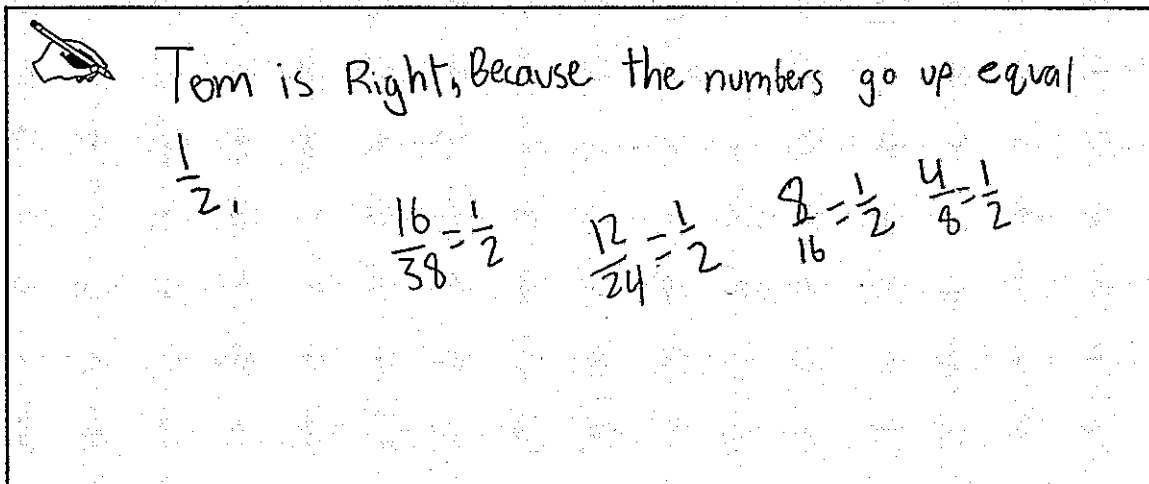 Tom is Right, Because the numbers go up equal
1/2.
16/38 = 1/2 12/24 = 1/2 8/16 = 1/2 4/8 = 1/2